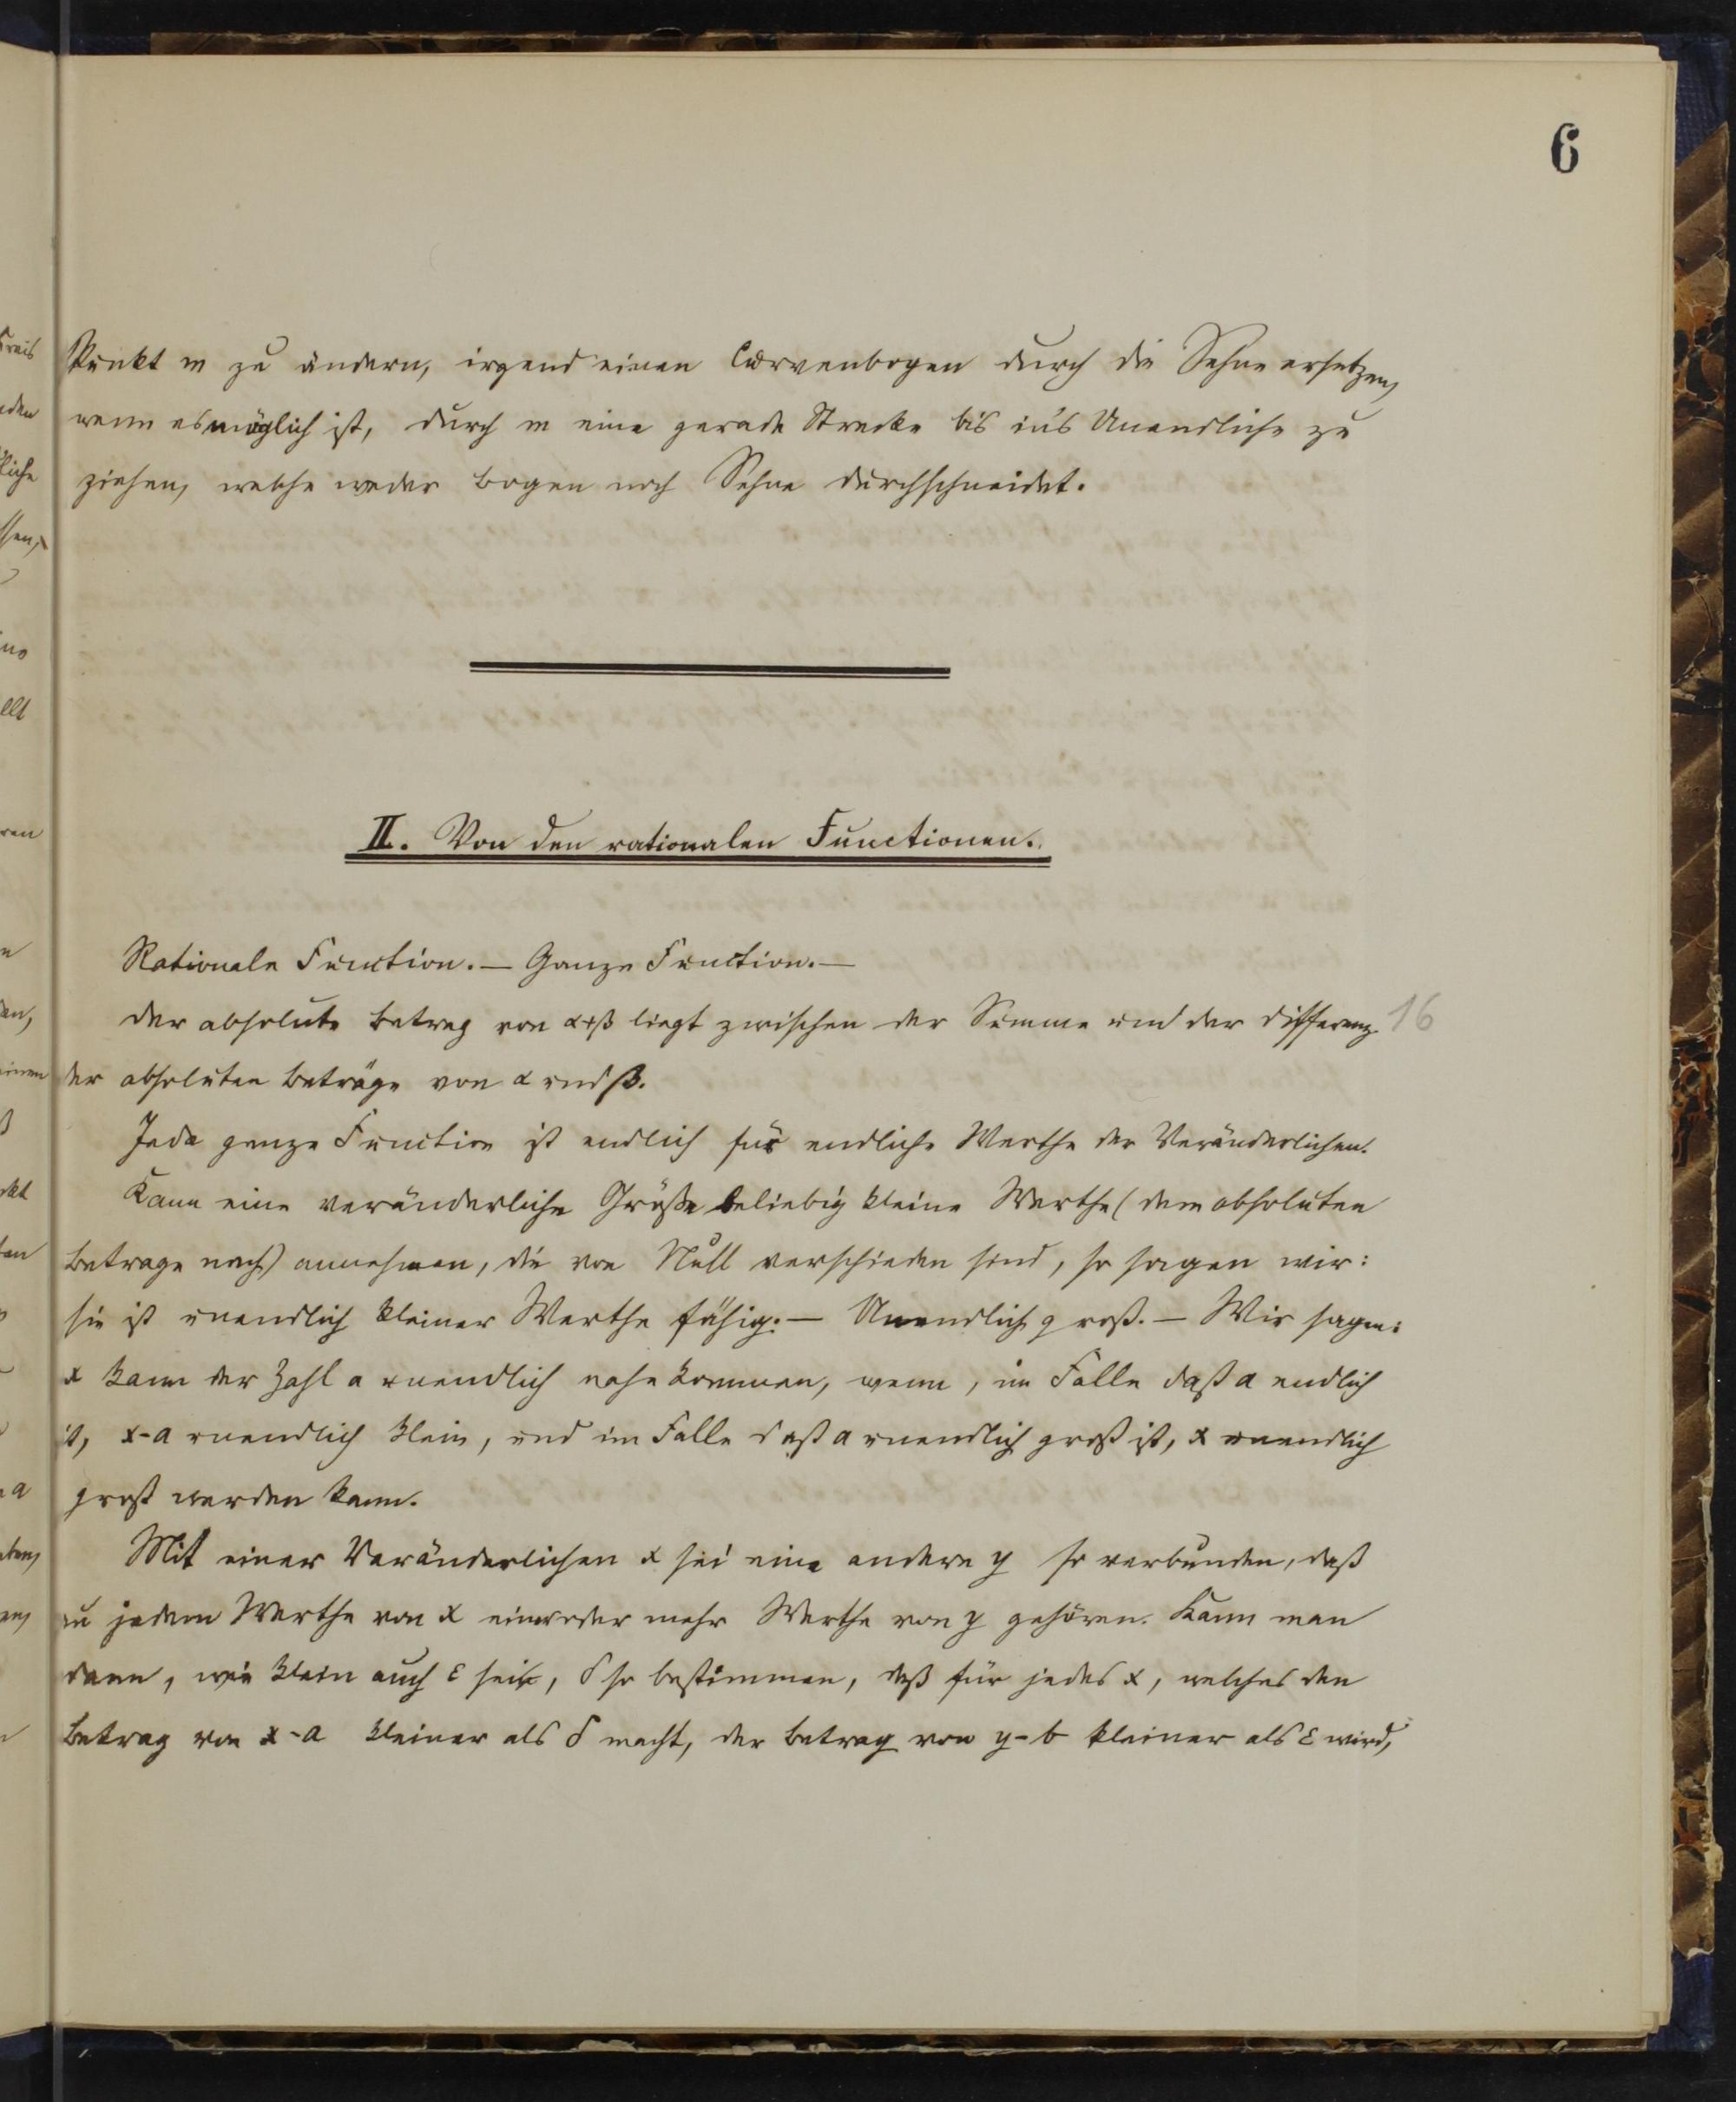 6
Punkt m zu ändern, irgend einen Curvenbogen durch die Sehne ersetzen,
wenn es möglich ist, durch m eine gerade Strecke bis in's Unendliche zu
ziehen, welche weder Bogen noch Sehne durchschneidet.
II. Von den rationalen Functionen.
Rationale Function. — Ganze Function. —
Der absolute Betrag von α+β liegt zwischen der Summe und der Differenz 16
der absoluten Beträge von α und β.
Jede ganze Function ist endlich für endliche Werthe der Veränderlichen.
Kann eine veränderliche Größe beliebig kleine Werthe (dem absoluten
Betrage nach) annehmen, die von Null verschieden sind, so sagen wir:
sie ist unendlich kleiner Werthe fähig. — Unendlich groß. — Wir sagen:
x kann der Zahl a unendlich nahe kommen, wenn, im Falle daß a endlich
ist, x-a unendlich klein, und im Falle daß a unendlich groß ist, x unendlich
groß werden kann.
Mit einer Veränderlichen x sei eine andere y so verbunden, daß
zu jedem Werthe von x ein oder mehr Werthe von y gehören. Kann man
dann, wie klein auch ε sei, δ so bestimmen, daß für jedes x, welches den
Betrag von x-a kleiner als δ macht, der Betrag von y-b kleiner als ε wird,